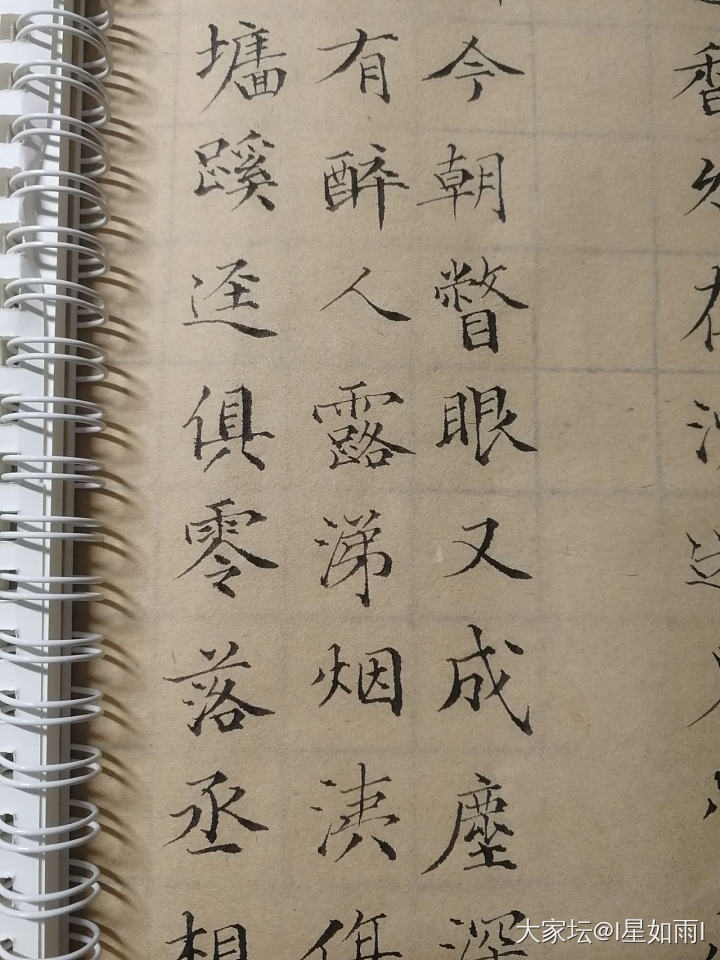 今朝瞥眼又成塵深
有醉人露涕烟洟
墻蹊逕俱零落丞相
大家坛@I星如雨I